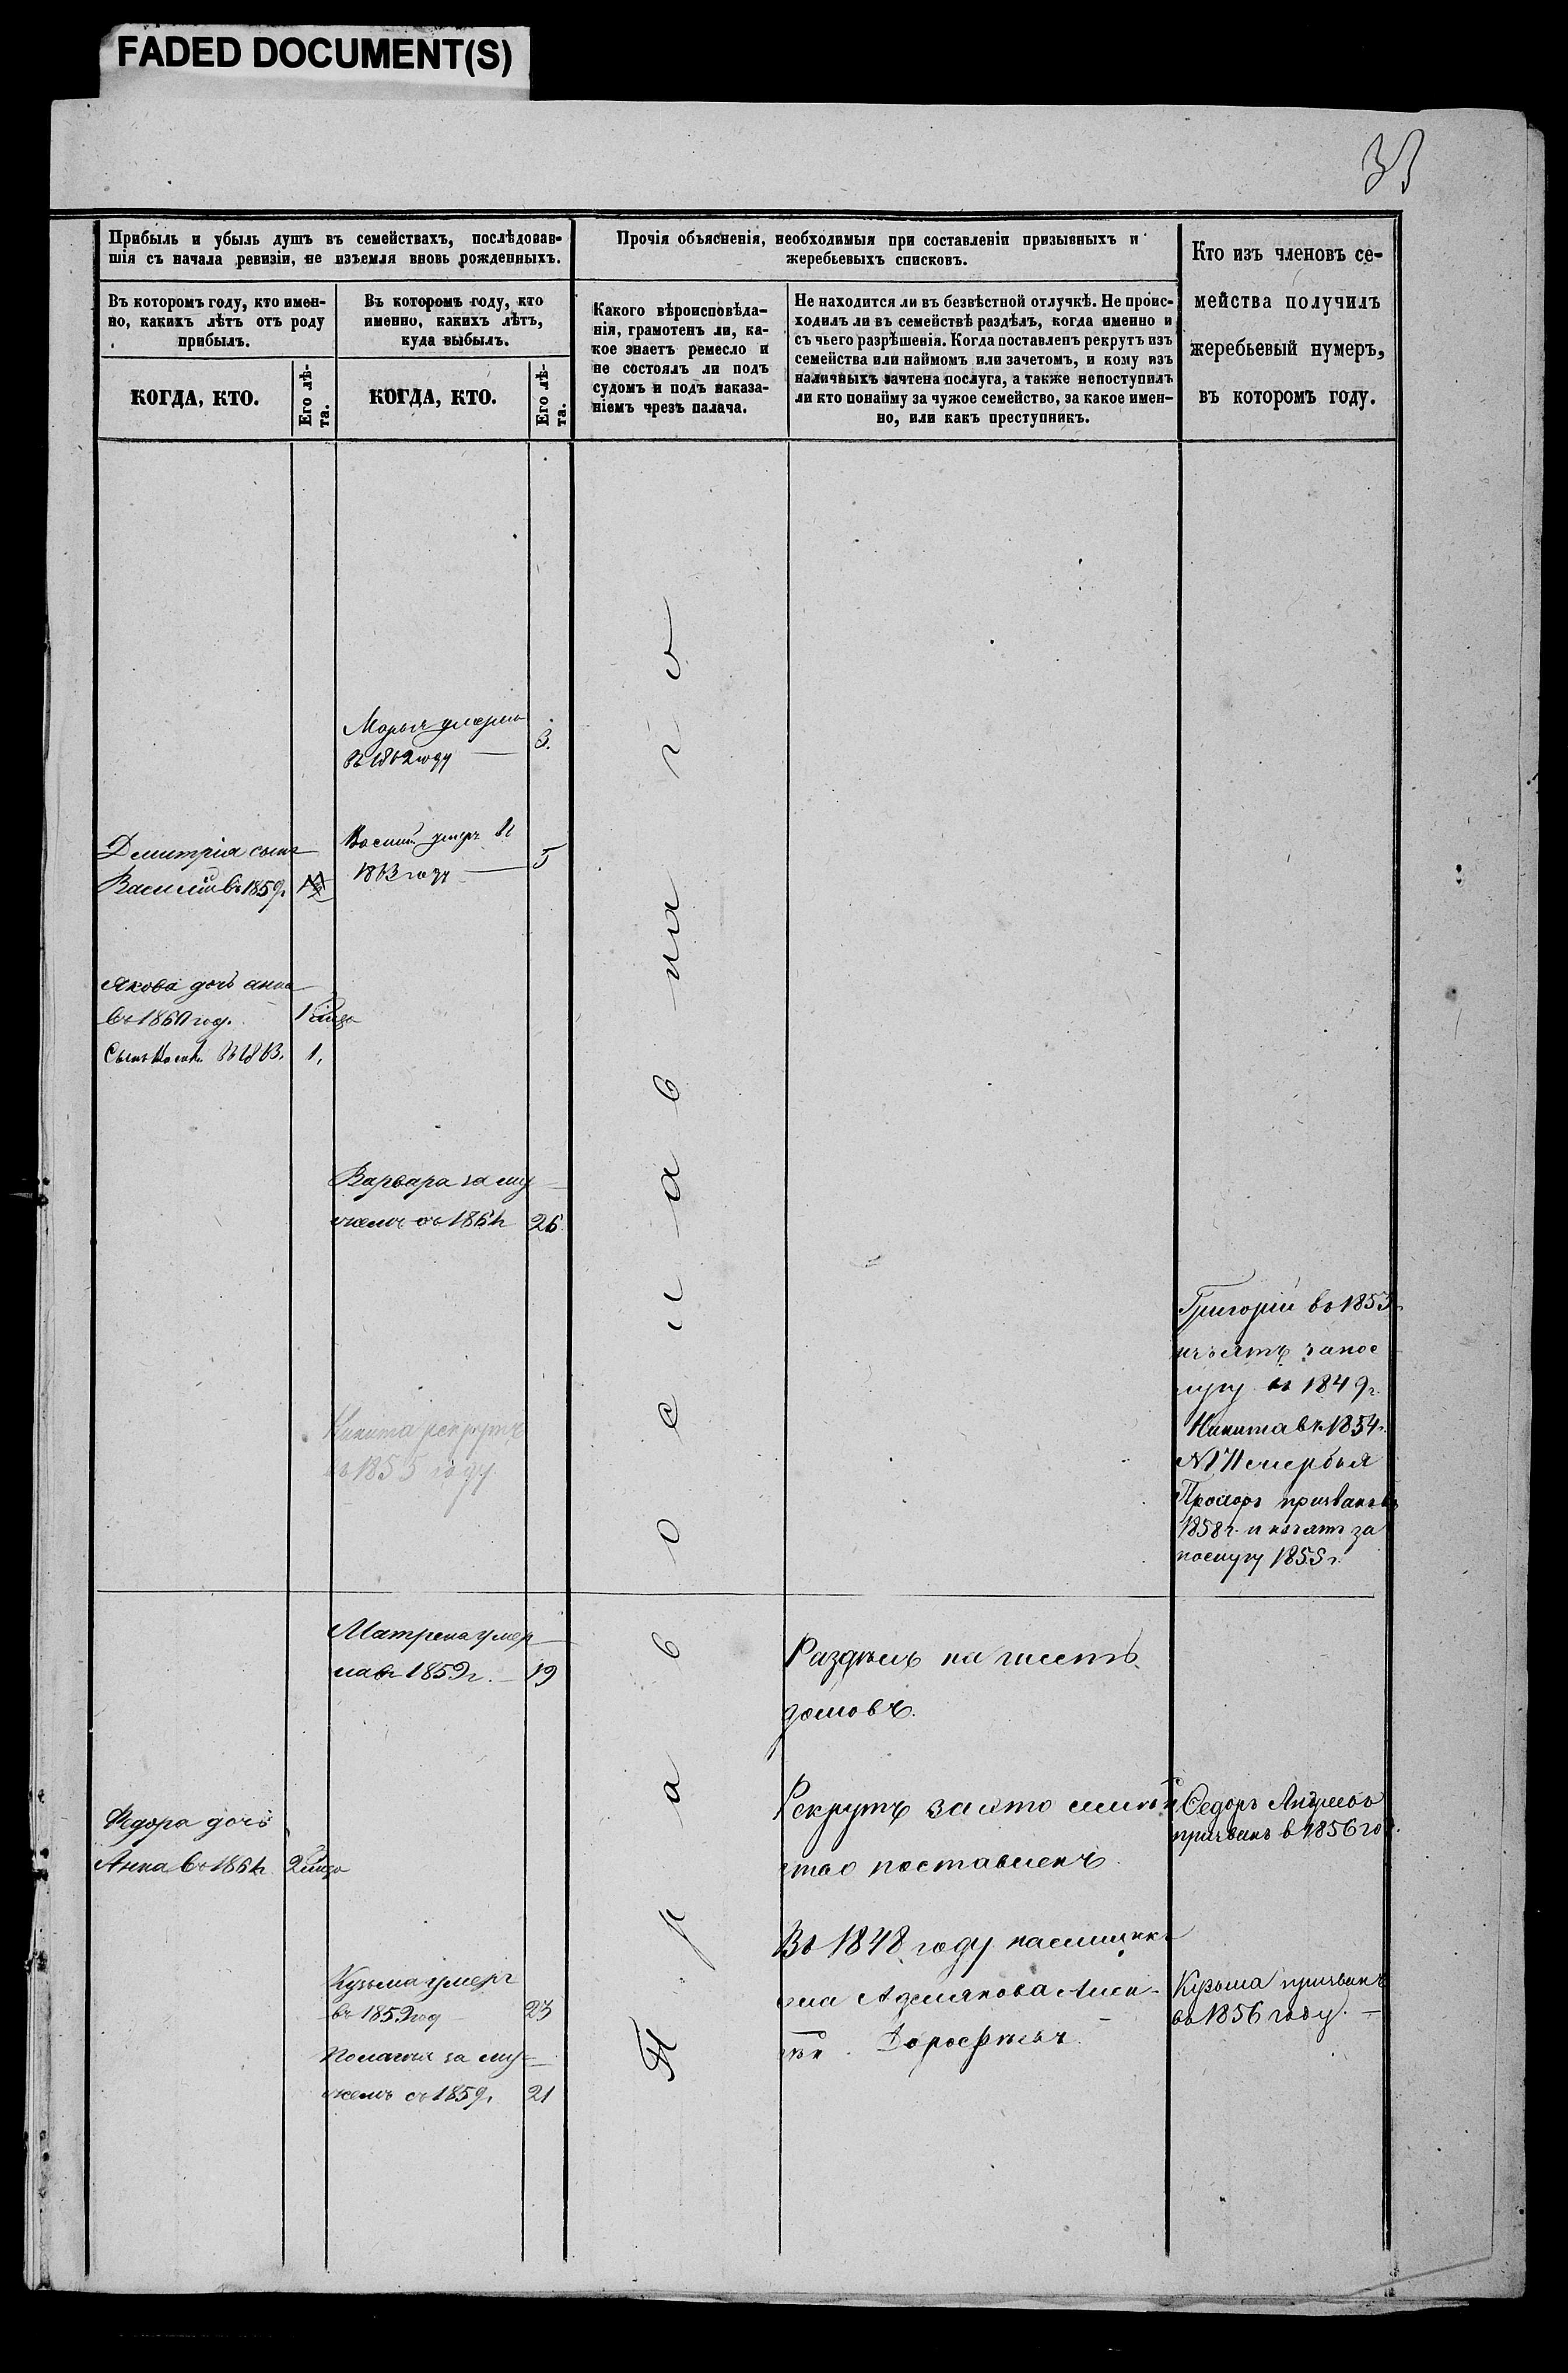 FADED DOCUMENT(S)
33
Прибыль и убыль душъ въ семействахъ, послѣдовав-
шія съ начала ревизіи, не изъемля вновь рожденныхъ.
Прочія объясненія, необходимыя при составленіи призывныхъ и
жеребьевыхъ списковъ.
Кто изъ членовъ се-
мейства получилъ
жеребьевый нумеръ,
въ которомъ году.
Въ которомъ году, кто имен-
но, какихъ лѣтъ отъ роду
прибылъ.
Въ которомъ году, кто
именно, какихъ лѣтъ,
куда выбылъ.
Какого вѣроисповѣда-
нія, грамотенъ ли, ка-
кое знаетъ ремесло и
не состоялъ ли подъ
судомъ и подъ наказа-
ніемъ чрезъ палача.
Не находится ли въ безвѣстной отлучкѣ. Не проис-
ходилъ ли въ семействѣ раздѣлъ, когда именно и
съ чьего разрѣшенія. Когда поставленъ рекрутъ изъ
семейства или наймомъ или зачетомъ, и кому изъ
наличныхъ зачтена послуга, а также непоступилъ
ли кто понайму за чужое семейство, за какое имен-
но, или какъ преступникъ.
КОГДА, КТО.
Его лѣ-
та.
КОГДА, КТО.
Его лѣ-
та.
Православнаго
Марья умерла
въ 1862 году 3.
Дмитрія сынъ
Василій въ 1859г.
Василій умеръ въ
1863 году 5
Якова дочь анна
въ 1860 год. 1
Сынъ В 1863. 1.
Варвара за му
жемъ съ 1861г 26
Григорій въ 1853
изъятъ запос
лугу въ 1849г.
Никита въ 1854г.
Никита рекрутъ
въ 1855 году
Прохоръ призванъ въ
1858г. и изъятъ за
послугу 1855г.
Матрена умер
ла въ 1859г. 19
Раздѣлъ на шесть
домовъ.
Рекрутъ за это
ство поставленъ.
Федоръ Андреевъ
призванъ в 1856 го
Федора дочь
Анна въ 1861г. 2
Въ 1848 году наемщикъ
Дорофѣевъ.
Кузьма призванъ
въ 1856 году.
Кузьма умеръ
въ 1859 год 23
Пелагея за му-
жемъ съ 1859г. 21